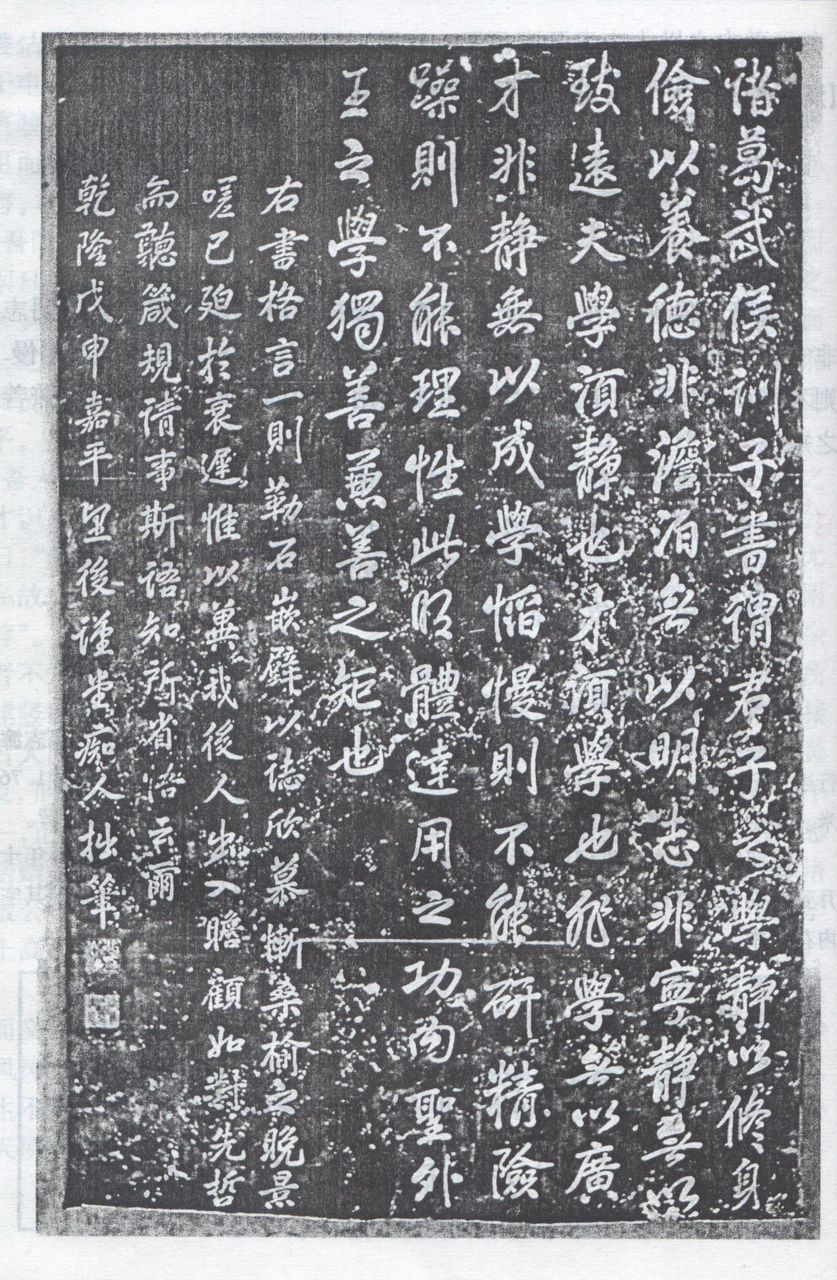 諸葛武侯訓子書謂君子之學靜以修身
儉以養德非澹泊無以明志非寧靜無以
致遠夫學須靜也才須學也非學無以廣
才非靜無以成學慆慢則不能研精險
躁則不能理性此明體達用之功內聖外
王之學獨善兼善之矩也
右書格言一則勒石嵌壁以誌欣慕慚桑榆之晚景
嗟已迫於衰遲惟以冀我後人出入瞻顧如對先哲
而聽箴規請事斯語知所省悟云爾
乾隆戊申嘉平望後謹堂痴人拙筆